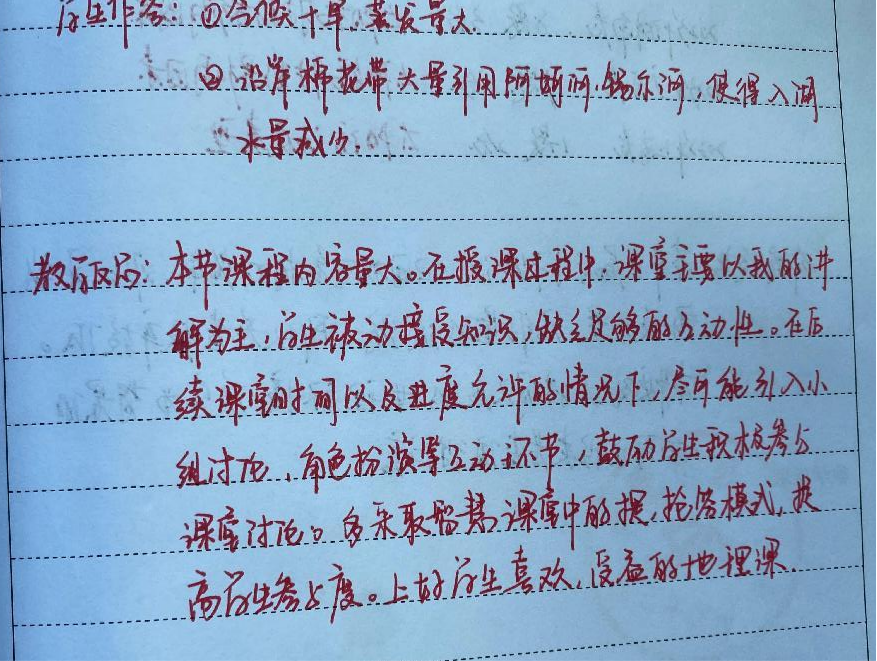 学生作答：①气候干旱，蒸发量大。
②沿岸棉花带大量引用阿姆河、锡尔河，使得入湖
水量减少。
教学反思：本节课程内容量大。在授课过程中，课堂主要以我的讲
解为主，学生被动接受知识，缺乏足够的互动性。在后
续课堂时间以及进度允许的情况下，尽可能引入小
组讨论、角色扮演等互动环节，鼓励学生积极参与
课堂讨论。多采取智慧课堂中的提、抢答模式，提
高学生参与度。上好学生喜欢，受益的地理课。